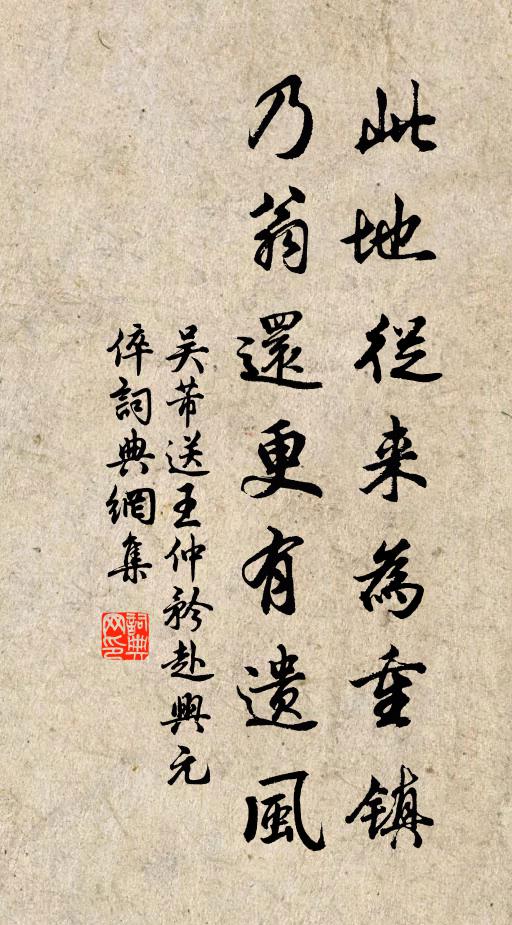 此地從来為重鎮
乃翁還更有遺風
吴芾送王仲矜赴興元
倅詞典網集
詞典网印